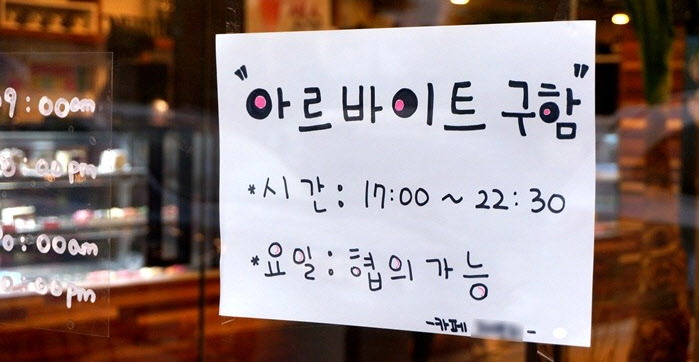 "아르바이트 구함"
*시간: 17:00 ~ 22:30
*요일: 협의 가능
-카페 -
9:00am
00pm
0:00am
00pm